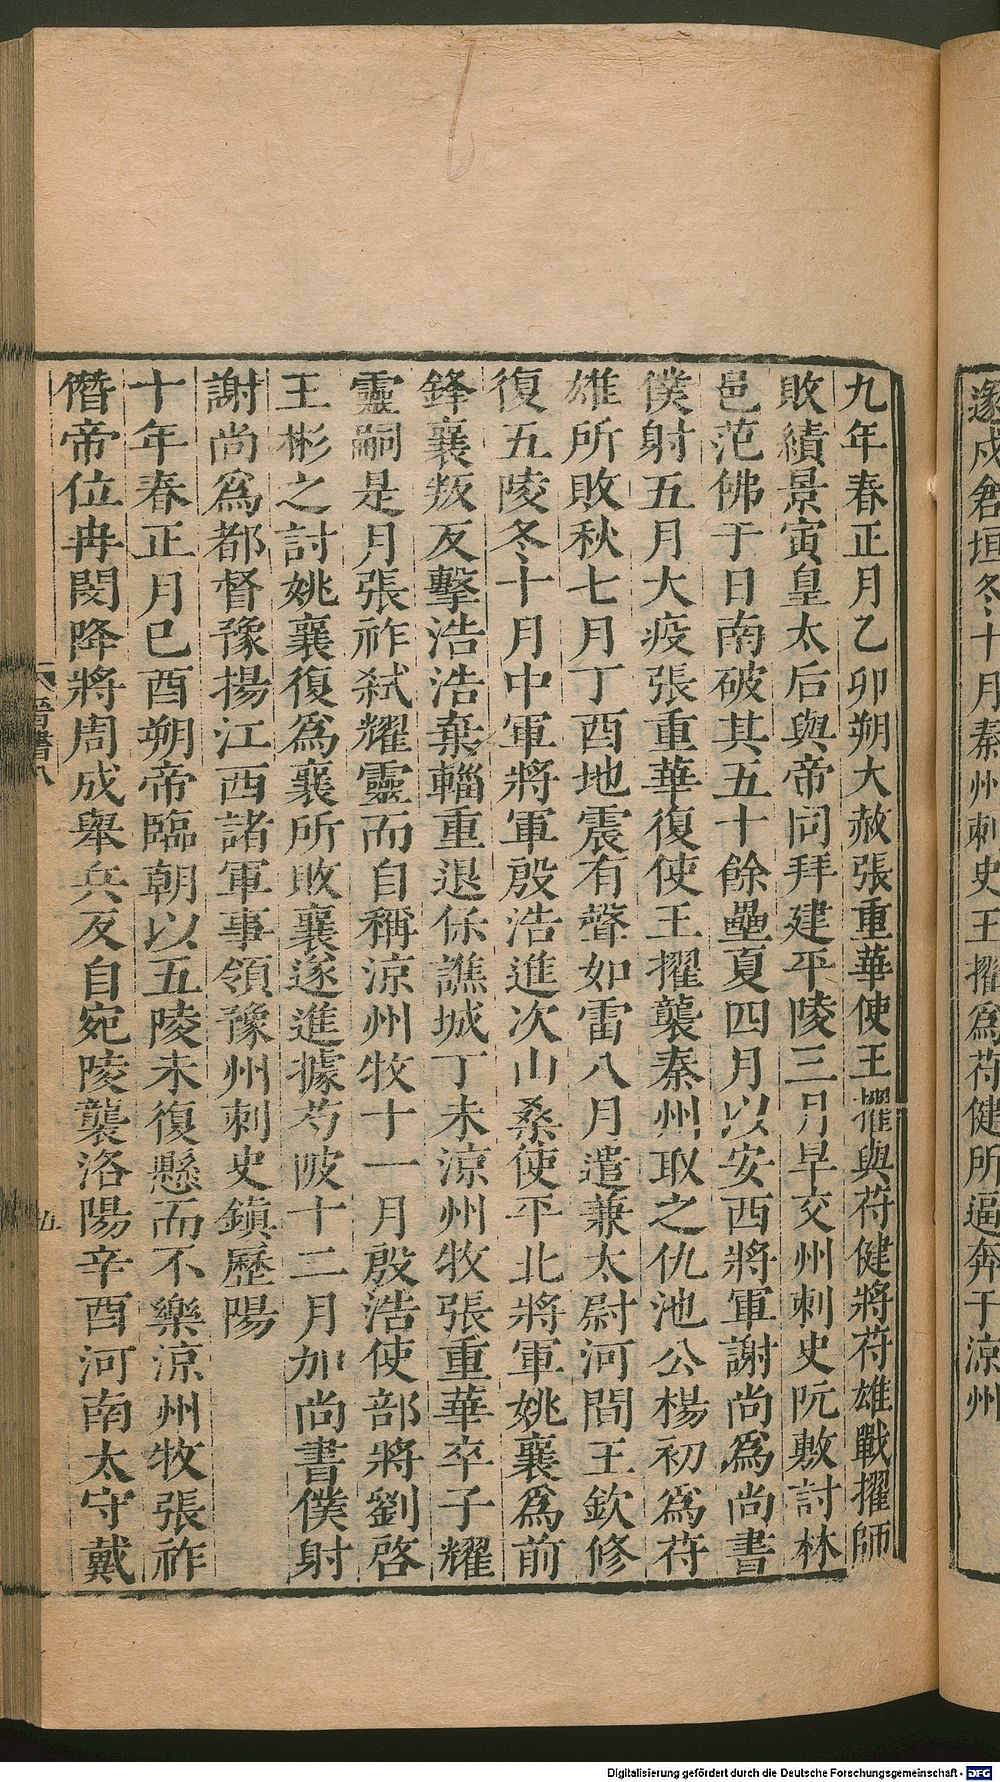 遂戍倉垣冬十月秦州刺史王擢爲苻健所逼奔于涼州
九年春正月乙卯朔大赦張重華使王擢與苻健將苻雄戰擢師
敗績景寅皇太后與帝同拜建平陵三月旱交州刺史阮敷討林
邑范佛于日南破其五十餘壘夏四月以安西將軍謝尚爲尚書
僕射五月大疫張重華復使王擢襲秦州取之仇池公楊初爲苻
雄所敗秋七月丁酉地震有聲如雷八月遣兼太尉河間王欽修
復五陵冬十月中軍將軍殷浩進次山桑使平北將軍姚襄爲前
鋒襄叛反擊浩浩棄輜重退保譙城丁未涼州牧張重華卒子耀
靈嗣是月張祚弑耀靈而自稱涼州牧十一月殷浩使部將劉啓
王彬之討姚襄復爲襄所敗襄遂進據芍陂十二月加尚書僕射
謝尚爲都督豫揚江西諸軍事領豫州刺史鎮歷陽
十年春正月巳酉朔帝臨朝以五陵未復懸而不樂涼州牧張祚
僭帝位冉閔降將周成舉兵反自宛陵襲洛陽辛酉河南太守戴
晉書八
五
Digitalisierung gefördert durch die Deutsche Forschungsgemeinschaft - DFG